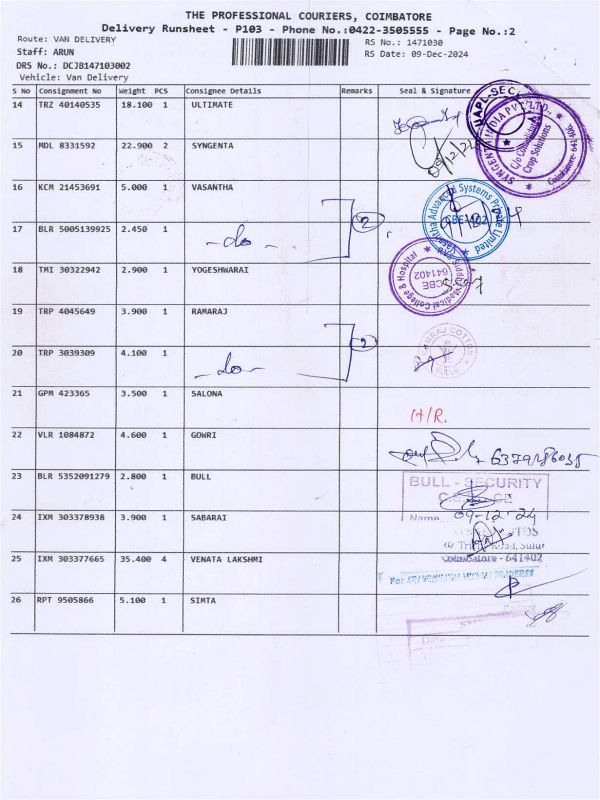 THE PROFESSIONAL COURIERS, COIMBATORE
Delivery Runsheet - P103 - Phone No.:0422-3505555 - Page No.:2
Route: VAN DELIVERY
RS No.: 1471030
Staff: ARUN
RS Date: 09-Dec-2024
DRS No.: DCJB147103002
Vehicle: Van Delivery
S No Consignment No Weight PCS Consignee Details Remarks Seal & Signature
14 TRZ 40140535 18.100 1 ULTIMATE
UAPL-SEC
15 MDL 8331592 22.900 2 SYNGENTA
SYNGENTA INDIA PVT. LTD.,
Crop Solutions
Coimbatore
16 KCM 21453691 5.000 1 VASANTHA
Vasantha Advanced Systems Private Limited
CBE-402
17 BLR 5005139925 2.450 1 -do- 2
18 TMI 30322942 2.900 1 YOGESHWARAI
Medical College & Hospital
CBE
641402
19 TRP 4045649 3.900 1 RAMARAJ
RAMRAJ COTTON
20 TRP 3039309 4.100 1 -do- 2
21 GPM 423365 3.500 1 SALONA
H/R.
22 VLR 1084872 4.600 1 GOWRI
6379186035
23 BLR 5352091279 2.800 1 BULL
BULL - SECURITY
Name
09-12-24
24 IXM 303378938 3.900 1 SABARAI
Road, Sulur
Coimbatore - 641402
25 IXM 303377665 35.400 4 VENATA LAKSHMI
For
26 RPT 9505866 5.100 1 SIMTA